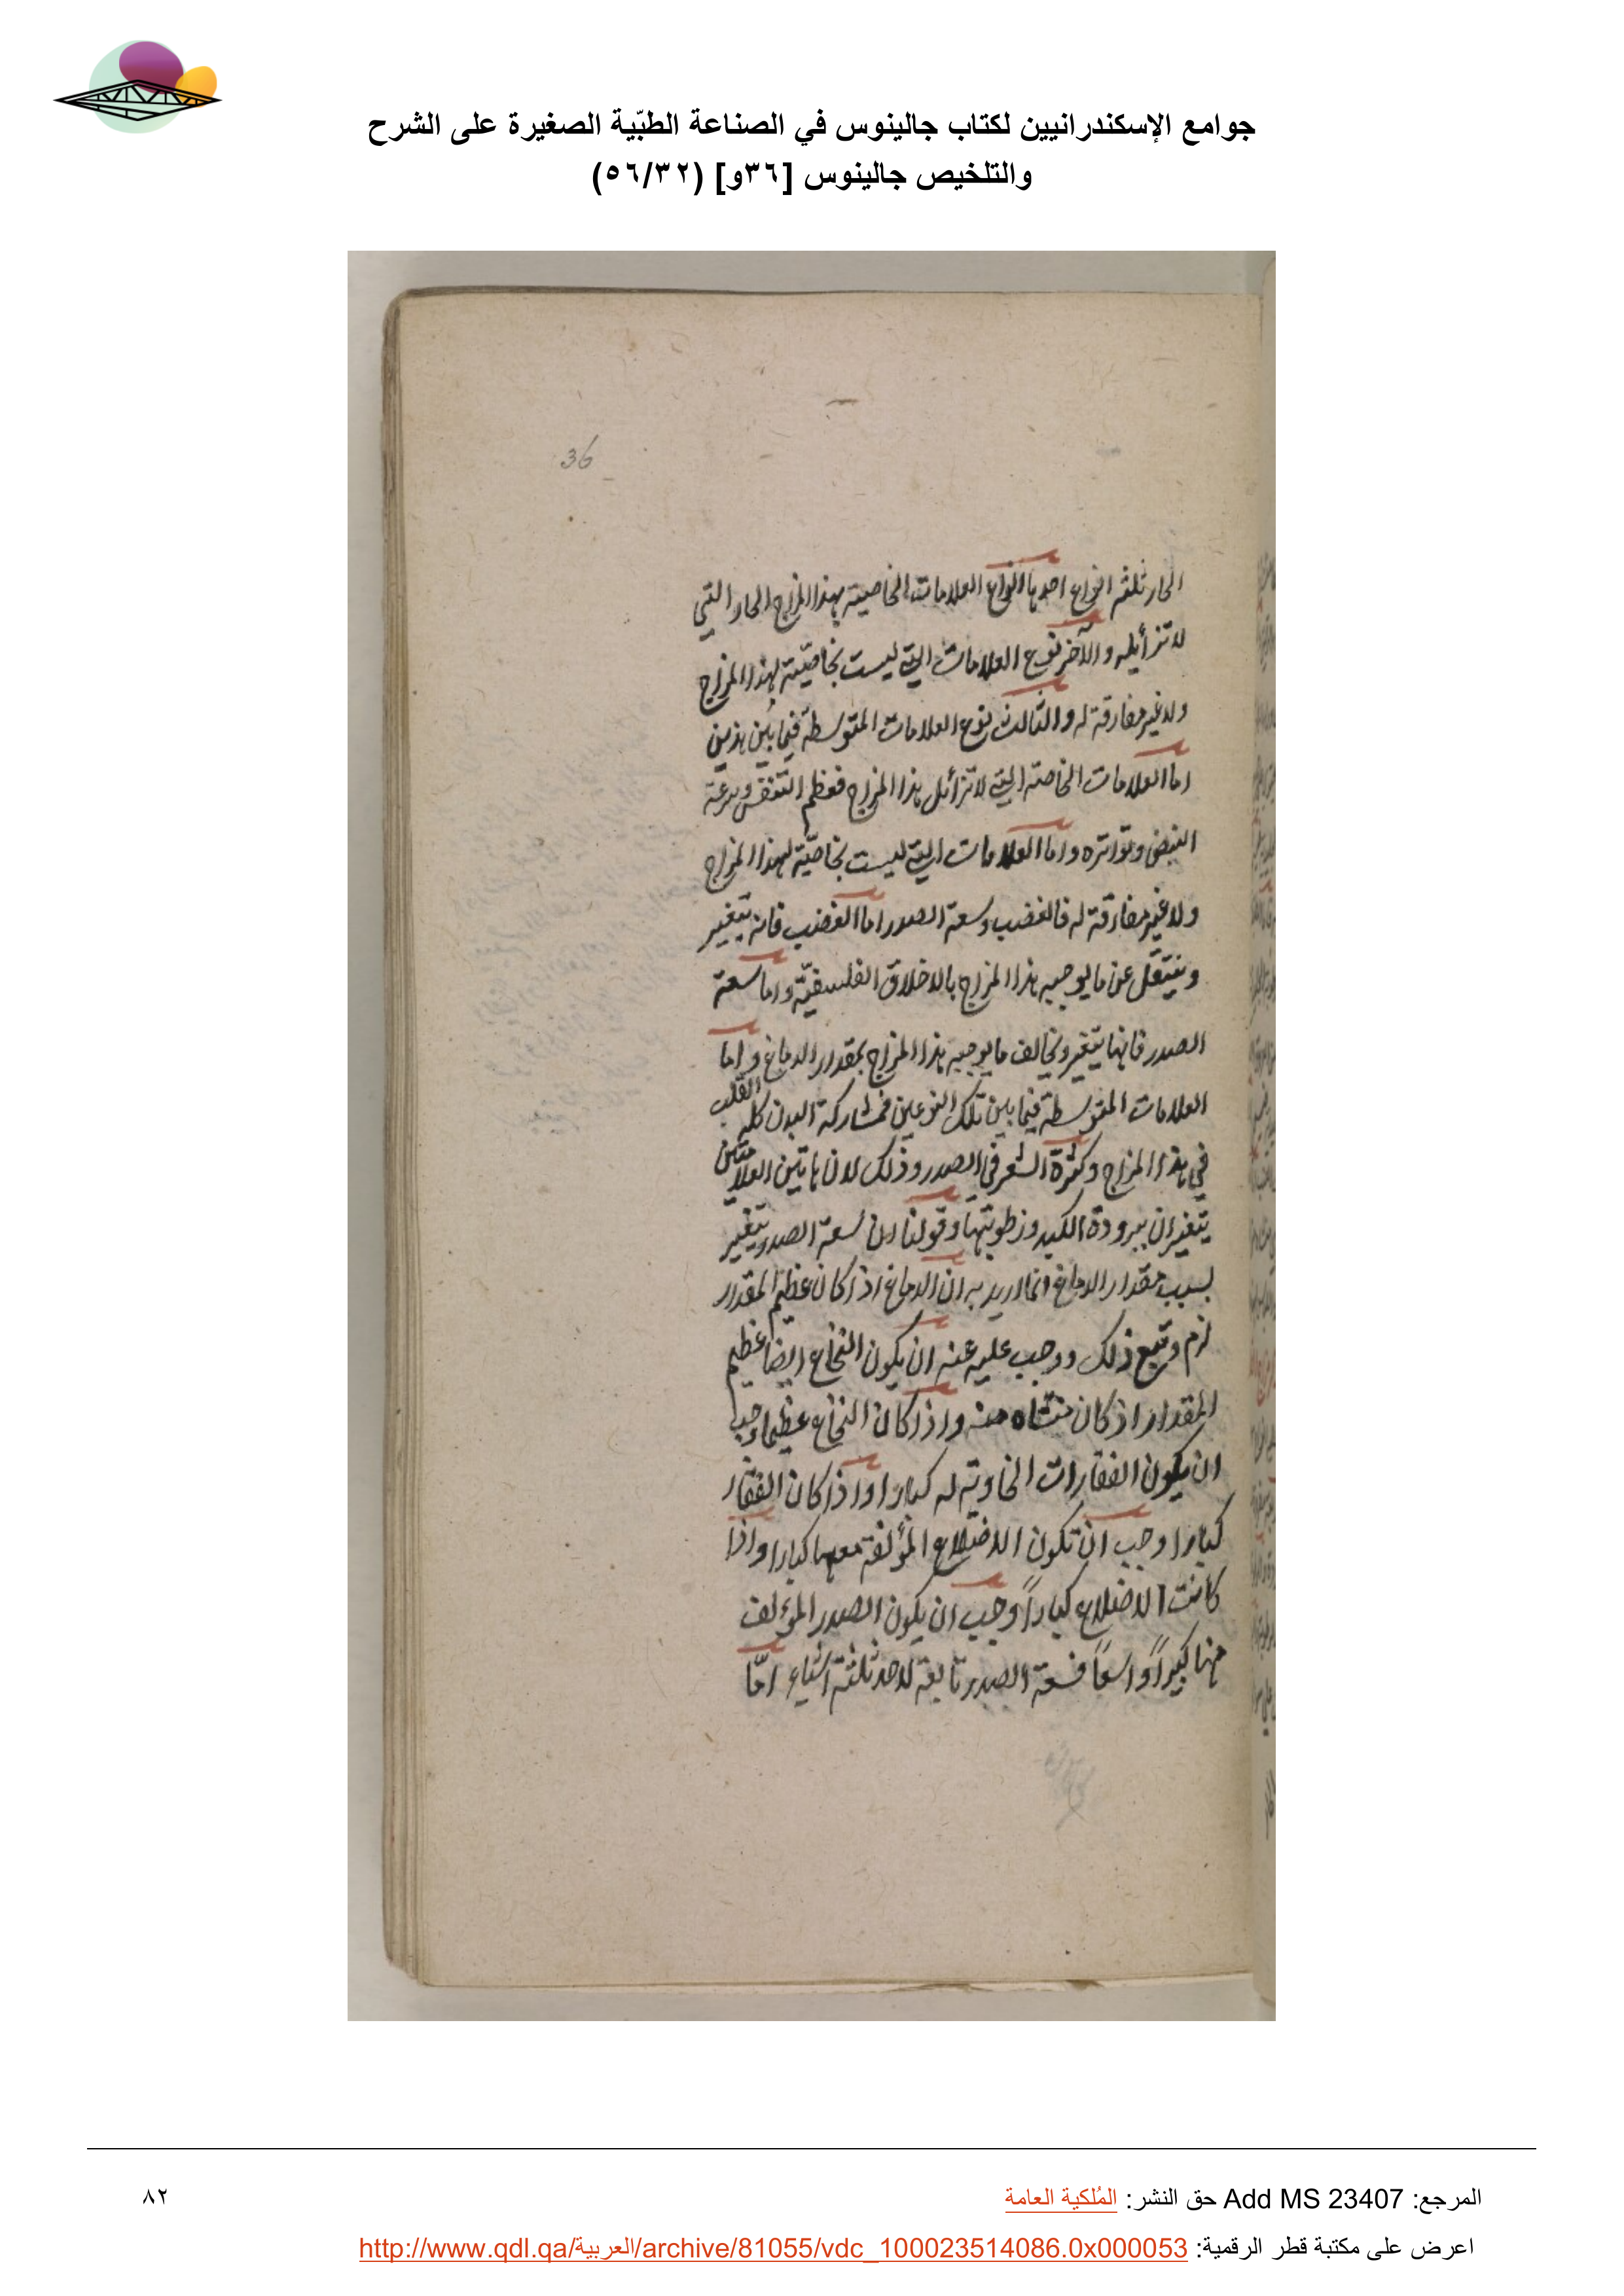 جوامع الإسكندرانيين لكتاب جالينوس في الصناعة الطبّية الصغيرة على الشرح
والتلخيص جالينوس [٣٦و] (٥٦/٣٢)
36
الحار ثلثة انواع احدها انواع العلامات الخاصية بهذا المزاج الحار التي
لا تزايله والآخر نوع العلامات التي ليست بخاصّية لهذا المزاج
ولا غير مفارقة له والثالث نوع العلامات المتوسطة فيما بين هذين
اما العلامات الخاصة التي لا تزائل هذا المزاج فعظم التنفس وسرعة
النبض وتواتره واما العلامات التي ليست بخاصّية لهذا المزاج
ولا غير مفارقة له فالغضب وسعة الصدر اما الغضب فانه يتغير
وينتقل عن ما يوجبه هذا المزاج بالاخلاق الفلسفيّة واما سعة
الصدر فانها يتغير ويخالف ما يوجبه هذا المزاج بمقدار الدماغ واما
العلامات المتوسطة فيما بين تلك النوعين فمشاركة البدن كله القلب
في هذا المزاج وكثرة الشعر في الصدر وذلك لان هاتين العلامتين
يتغيران ببرودة الكبد ورطوبتها وقولنا ان سعة الصدر يتغير
بسبب مقدار الدماغ انما اريد به ان الدماغ اذا كان عظيم المقدار
لزم وتبع ذلك ووجب عليه عنه ان يكون النخاع ايضا عظيم
المقدار اذ كان منشاه منه واذا كان النخاع عظيما وجب
ان يكون الفقارات الحاوية له كبارا واذا كان الفقار
كبارا وجب ان تكون الاضلاع المؤلفة معها كبارا واذا
كانت الاضلاع كباراً وجب ان يكون الصدر المؤلف
منها كبيراً واسعاً فسعة الصدر تابعة لاحد ثلثة اشياء امّا
المرجع: Add MS 23407 حق النشر: المُلكية العامة
٨٢
اعرض على مكتبة قطر الرقمية: http://www.qdl.qa/العربية/archive/81055/vdc_100023514086.0x000053